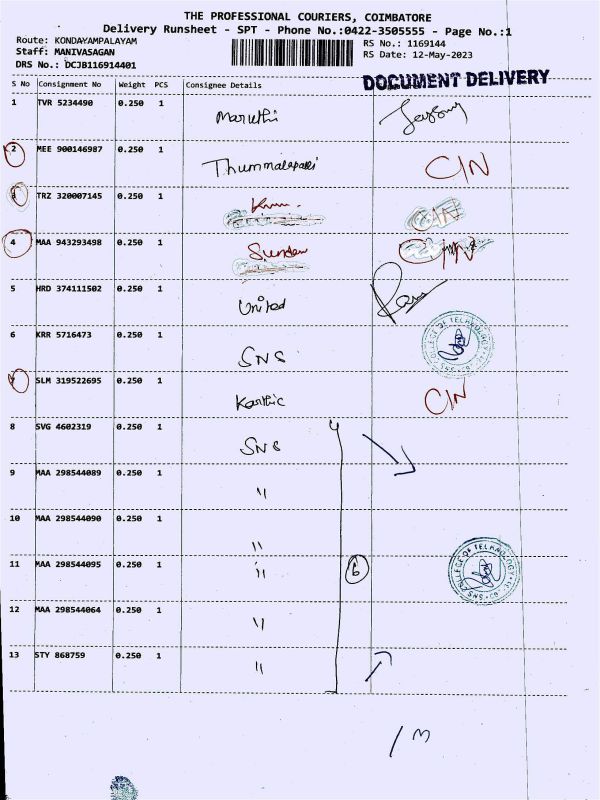 THE PROFESSIONAL COURIERS, COIMBATORE
Delivery Runsheet - SPT - Phone No.:0422-3505555 - Page No.:1
Route: KONDAYAMPALAYAM
Staff: MANIVASAGAN
DRS No.: DCJB116914401
RS No.: 1169144
RS Date: 12-May-2023
DOCUMENT DELIVERY
S No Consignment No Weight PCS Consignee Details
1 TVR 5234490 0.250 1 Maruthi
2 MEE 900146987 0.250 1 Thummalapalli C/N
3 TRZ 320007145 0.250 1 C/N
4 MAA 943293498 0.250 1 Sundar C/N
5 HRD 374111502 0.250 1 United
6 KRR 5716473 0.250 1 SNS
SNS COLLEGE OF TECHNOLOGY
7 SLM 319522695 0.250 1 Karthic C/N
8 SVG 4602319 0.250 1 SNS
9 MAA 298544089 0.250 1 "
10 MAA 298544090 0.250 1 "
11 MAA 298544095 0.250 1 " 6
SNS COLLEGE OF TECHNOLOGY
12 MAA 298544064 0.250 1 "
13 STY 868759 0.250 1 "